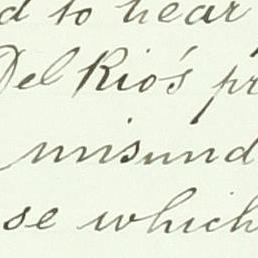 d to hear
Del Rio's pr
misund
se which